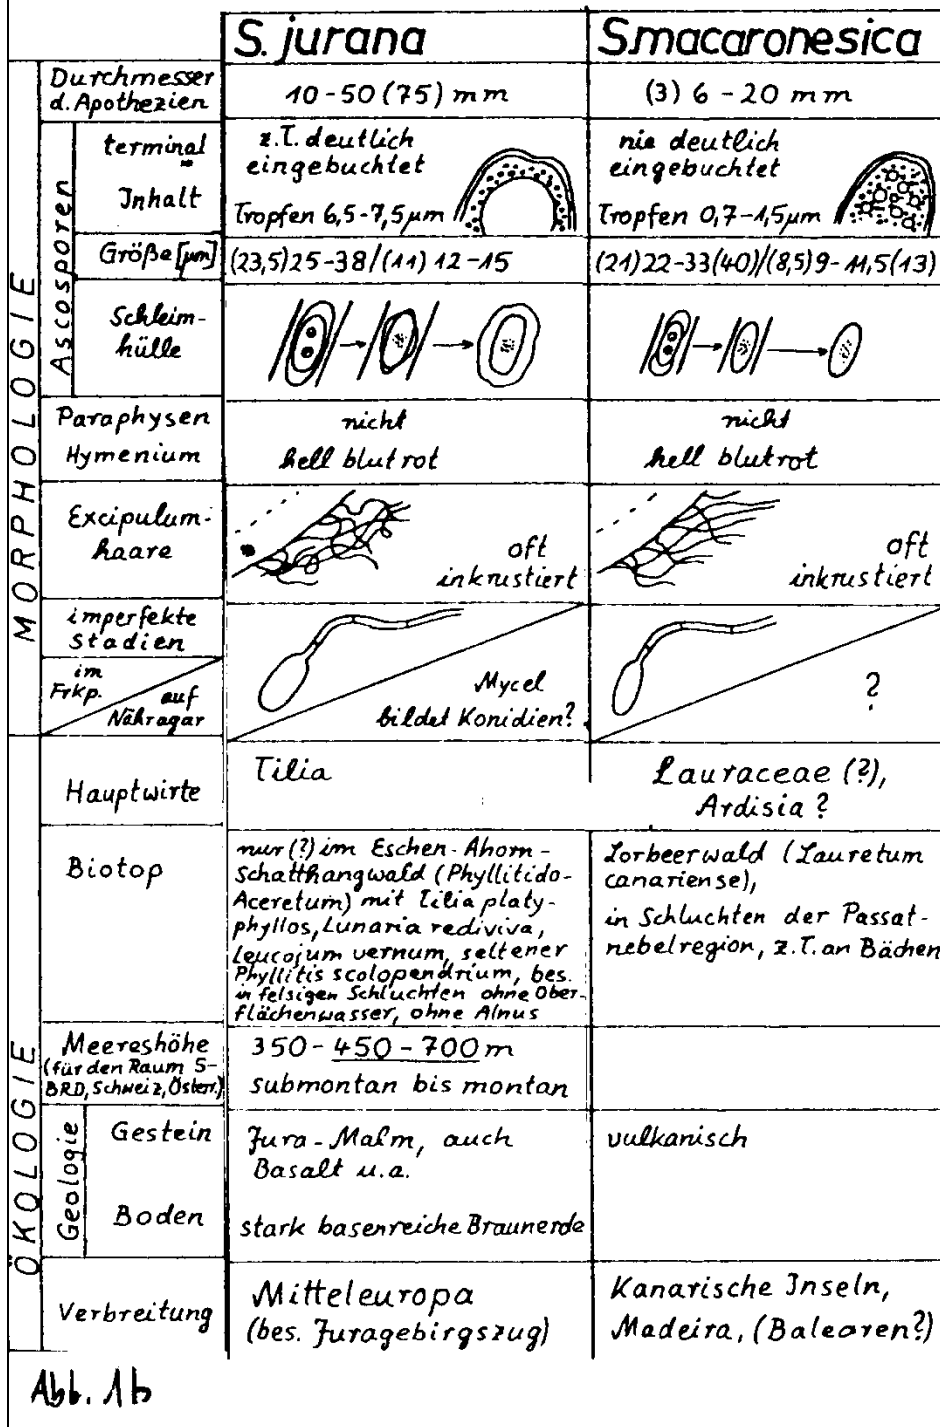 S. jurana
S. macaronesica
MORPHOLOGIE
Durchmesser
d. Apothezien
10-50 (75) mm
(3) 6 - 20 mm
Ascosporen
terminal
Inhalt
z.T. deutlich
eingebuchtet
Tropfen 6,5-7,5µm
nie deutlich
eingebuchtet
Tropfen 0,7-1,5µm
Größe [µm]
(23,5)25-38/(11) 12-15
(21)22-33(40)/(8,5)9-11,5(13)
Schleim-
hülle
Paraphysen
Hymenium
nicht
hell blutrot
nicht
hell blutrot
Excipulum-
haare
oft
inkrustiert
oft
inkrustiert
imperfekte
Stadien
im
Frkp.
auf
Nähragar
Mycel
bildet Konidien?
?
ÖKOLOGIE
Hauptwirte
Tilia
Lauraceae (?),
Ardisia ?
Biotop
nur (?) im Eschen-Ahorn-
Schatthangwald (Phyllitido-
Aceretum) mit Tilia platy-
phyllos, Lunaria rediviva,
Leucojum vernum, seltener
Phyllitis scolopendrium, bes.
in felsigen Schluchten ohne Ober-
flächenwasser, ohne Alnus
Lorbeerwald (Lauretum
canariense),
in Schluchten der Passat-
nebelregion, z.T. an Bächen
Meereshöhe
(für den Raum S-
BRD, Schweiz, Österr.)
350-450-700m
submontan bis montan
Geologie
Gestein
Jura-Malm, auch
Basalt u.a.
vulkanisch
Boden
stark basenreiche Braunerde
Verbreitung
Mitteleuropa
(bes. Juragebirgszug)
Kanarische Inseln,
Madeira, (Balearen?)
Abb. 1b